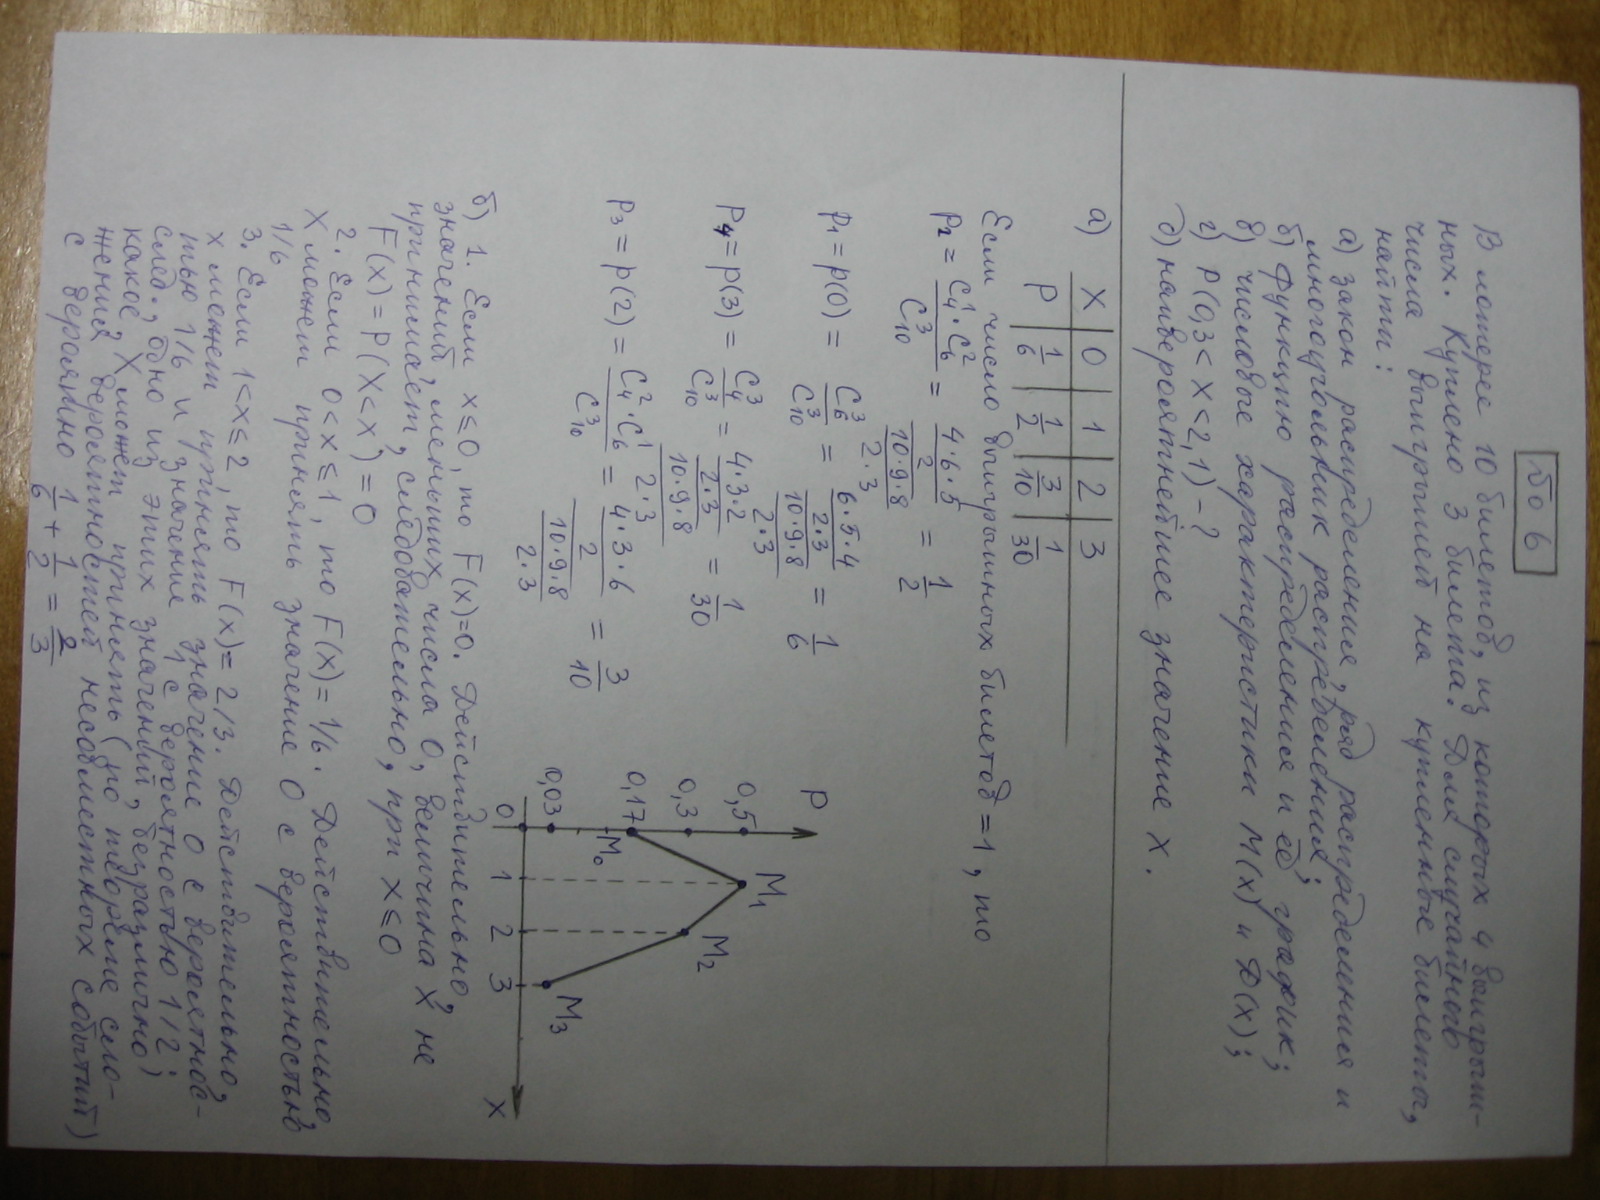 № 6
В лотерее 10 билетов, из которых 4 выигрыш-
ных. Куплено 3 билета. Для случайного
числа выигрышей на купленные билеты,
найти:
а) закон распределения, ряд распределения и
многоугольник распределения;
б) функцию распределения и её график;
в) числовые характеристики M(x) и D(x);
г) P(0,3 < x < 2,1) - ?
д) наивероятнейшее значение x.
а) X | 0 | 1 | 2 | 3
P | 1/6 | 1/2 | 3/10 | 1/30
Если число выигрышных билетов = 1, то
P₂ = C₄¹·C₆² / C₁₀³ = (4·6·5 / 2) / (10·9·8 / 2·3) = 1/2
P₁ = p(0) = C₆³ / C₁₀³ = (6·5·4 / 2·3) / (10·9·8 / 2·3) = 1/6
P₄ = p(3) = C₄³ / C₁₀³ = (4·3·2 / 2·3) / (10·9·8 / 2·3) = 1/30
P₃ = p(2) = C₄²·C₆¹ / C₁₀³ = (4·3·6 / 2) / (10·9·8 / 2·3) = 3/10
P
0,5
0,3
0,17
0,03
0
1
2
3
X
M₀
M₁
M₂
M₃
б) 1. Если x ≤ 0, то F(x)=0. Действительно,
значений, меньших числа 0, величина X не
принимает, следовательно, при x ≤ 0
F(x) = P(X < x) = 0
2. Если 0 < x ≤ 1, то F(x) = 1/6. Действительно,
X может принять значение 0 с вероятностью
1/6
3. Если 1 < x ≤ 2, то F(x) = 2/3. Действительно,
x может принять значение 0 с вероятнос-
тью 1/6 и значение 1 с вероятностью 1/2;
след., одно из этих значений, безразлично
какое, X может принять (по теореме сло-
жения вероятностей несовместных событий)
с вероятно 1/6 + 1/2 = 2/3